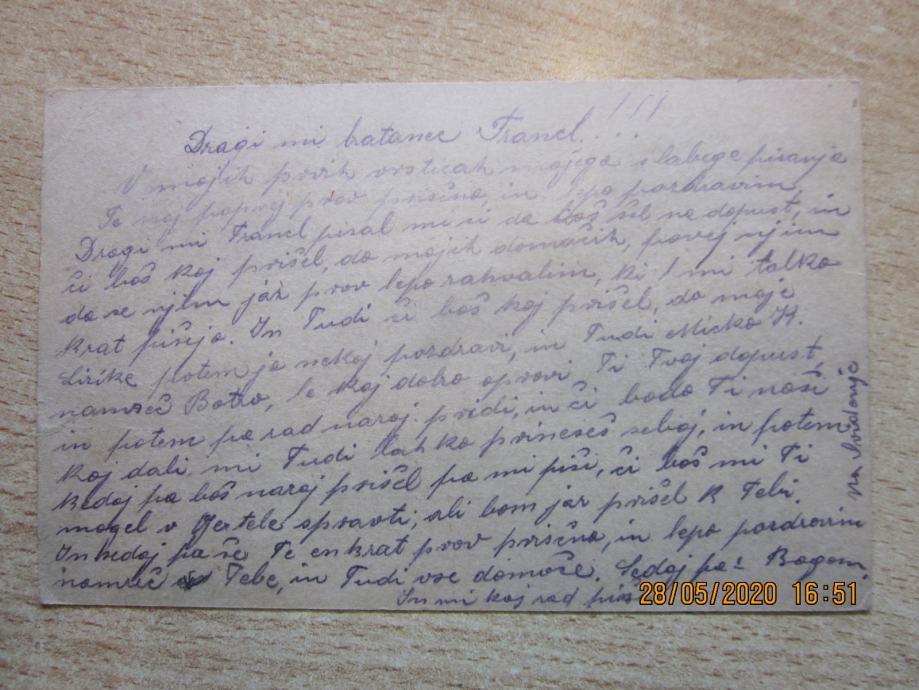 Dragi mi bratanec Francl!!!
V mojih prvih vrsticah mojega slabega pisanja
Te naj poprej prav prisčno, in lepo pozdravim,
Dragi mi Francl pisal mi si da boš šel na dopust, in
či boš kaj prišel, do mojih domačih, povej njim
da se njim jaz prav lepo zahvalim, ki mi talko
krat pišejo. In Tudi či boš kaj prišel, do moje
potem jo nekaj pozdravi, in Tudi Micko K.
namreč Botro, le kaj dobro opravi Ti Tvoj dopust,
in potem pa rad nazaj pridi, in či bodo Ti naši
kaj dali, mi Tudi lahko prineseš seboj, in potem
kedaj pa boš nazaj prišel pa mi piši, či boš mi Ti
mogel v spravti, ali bom jaz prišel k Tebi.
In sedaj pa še Te enkrat prav prisčno, in lepo pozdravim
namreč Tebe, in Tudi vse domače. Sedaj pa z Bogom,
In mi kaj rad piši
na svidenje
28/05/2020 16:51